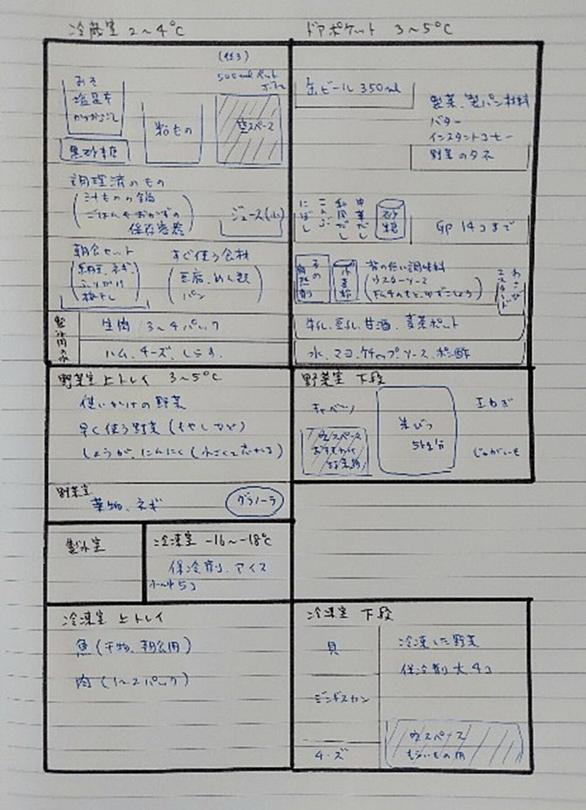 冷蔵室 2〜4℃
ドアポケット 3〜5℃
500mlペット
みそ
塩昆布
黒砂糖
粉もの
空スペース
調理済のもの
汁ものの鍋
ごはんやおかずの
保存容器
ジュース(小)
朝食セット
納豆、ネギ、
ふりかけ
梅干し
すぐ使う食材
豆腐、めん類
パン
製氷用の水
生肉 3〜4パック
ハム、チーズ、しらす
缶ビール 350ml
製菓、製パン材料
バター
インスタントコーヒー
野菜のタネ
にぼし
こんぶ
和風だし
中華だし
砂糖
卵 14コまで
背の低い調味料
牛乳、豆乳、甘酒、麦茶ポット
水、マヨ、ケチャップ、ソース、ポン酢
野菜室 上トレイ 3〜5℃
使いかけの野菜
早く使う野菜(もやしなど)
しょうが、にんにく
野菜室
葉物、ネギ
グラノーラ
野菜室 下段
キャベツ
空スペース
米びつ
5kg分
玉ねぎ
じゃがいも
製氷室
冷凍室 -16〜-18℃
保冷剤、アイス
小 45コ
冷凍室 上トレイ
魚(干物、朝食用)
肉(1〜2パック)
冷凍室 下段
貝
ジンギスカン
チーズ
冷凍した野菜
保冷剤 大4コ
空スペース
もらいもの用